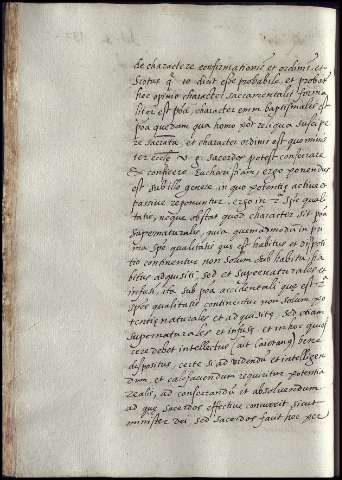 de charactere confirmationis et ordinis, et
Scotus q. 10 dicit esse probabile, et probat
hec opinio character sacramentalis forma
liter est poā, character enim baptismalis est
poa quedam qua homo pōt reliqua suscipe
re sacrāta, et character ordinis est quo minis
ter eccīe sacerdos potest consecrare
et conficere Eucharistiam, ergo ponendus
est sub illo genere, in quo potentie active et
passive reponuntur, ergo in 2 spē quali
tatis, neque obstat quod character sit poā
supernaturalis, quia quemadmodum in pri
ma spē qualitatis que est habitus et dispo
sitio continentur non solum sub habitu, ha
bitus adquisiti, sed et supernaturales et
infusi, ita sub poā accidentali que est 2
spēs qualitatis continentur non solum po
tentie naturales et adquisitę, sed etiam
supernaturales et infusę et in hoc quies
cere debet intellectus (ait Caietanus) bene
dispositus, certe si ad videndū et intelligen
dum, et calefaciendum requiritur potentia
realis, ad consecrandū et absolvendum
ad que sacerdos effective concurrit sicut
minister dei, sed sacerdos facit hec per